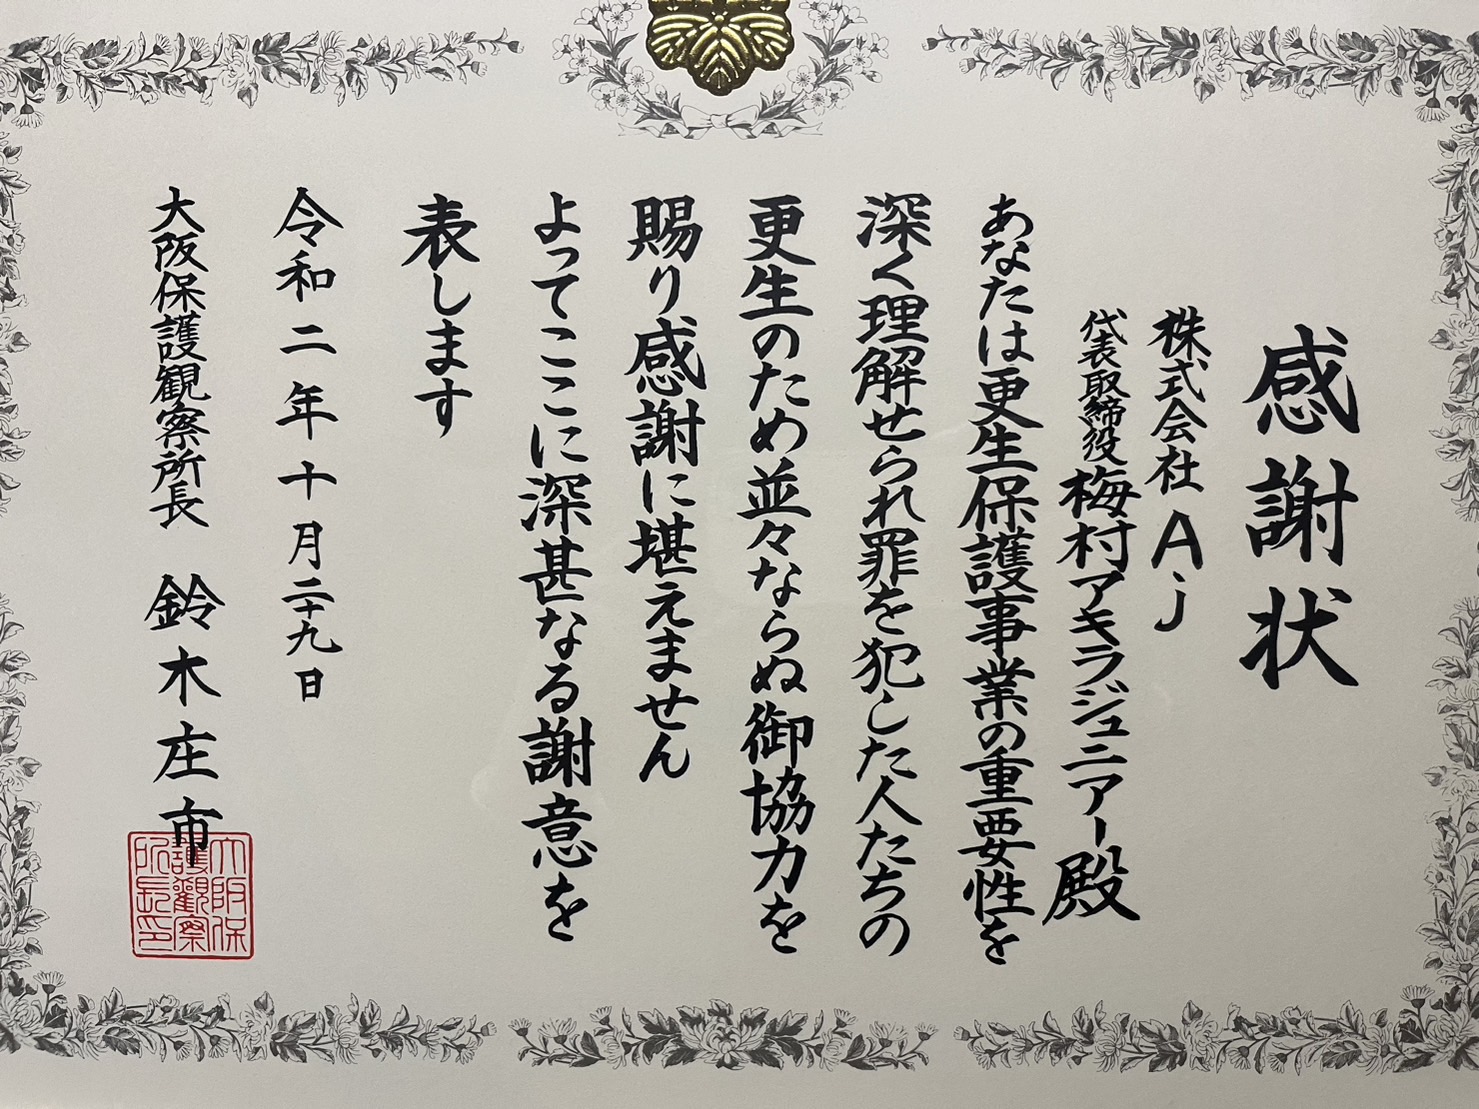 感謝状
株式会社 A.j
代表取締役 梅村アキラジュニアー殿
あなたは更生保護事業の重要性を
深く理解せられ罪を犯した人たちの
更生のため並々ならぬ御協力を
賜り感謝に堪えません
よってここに深甚なる謝意を
表します
令和二年十月二十九日
大阪保護観察所長 鈴木庄市
大阪保
護観察
所長印